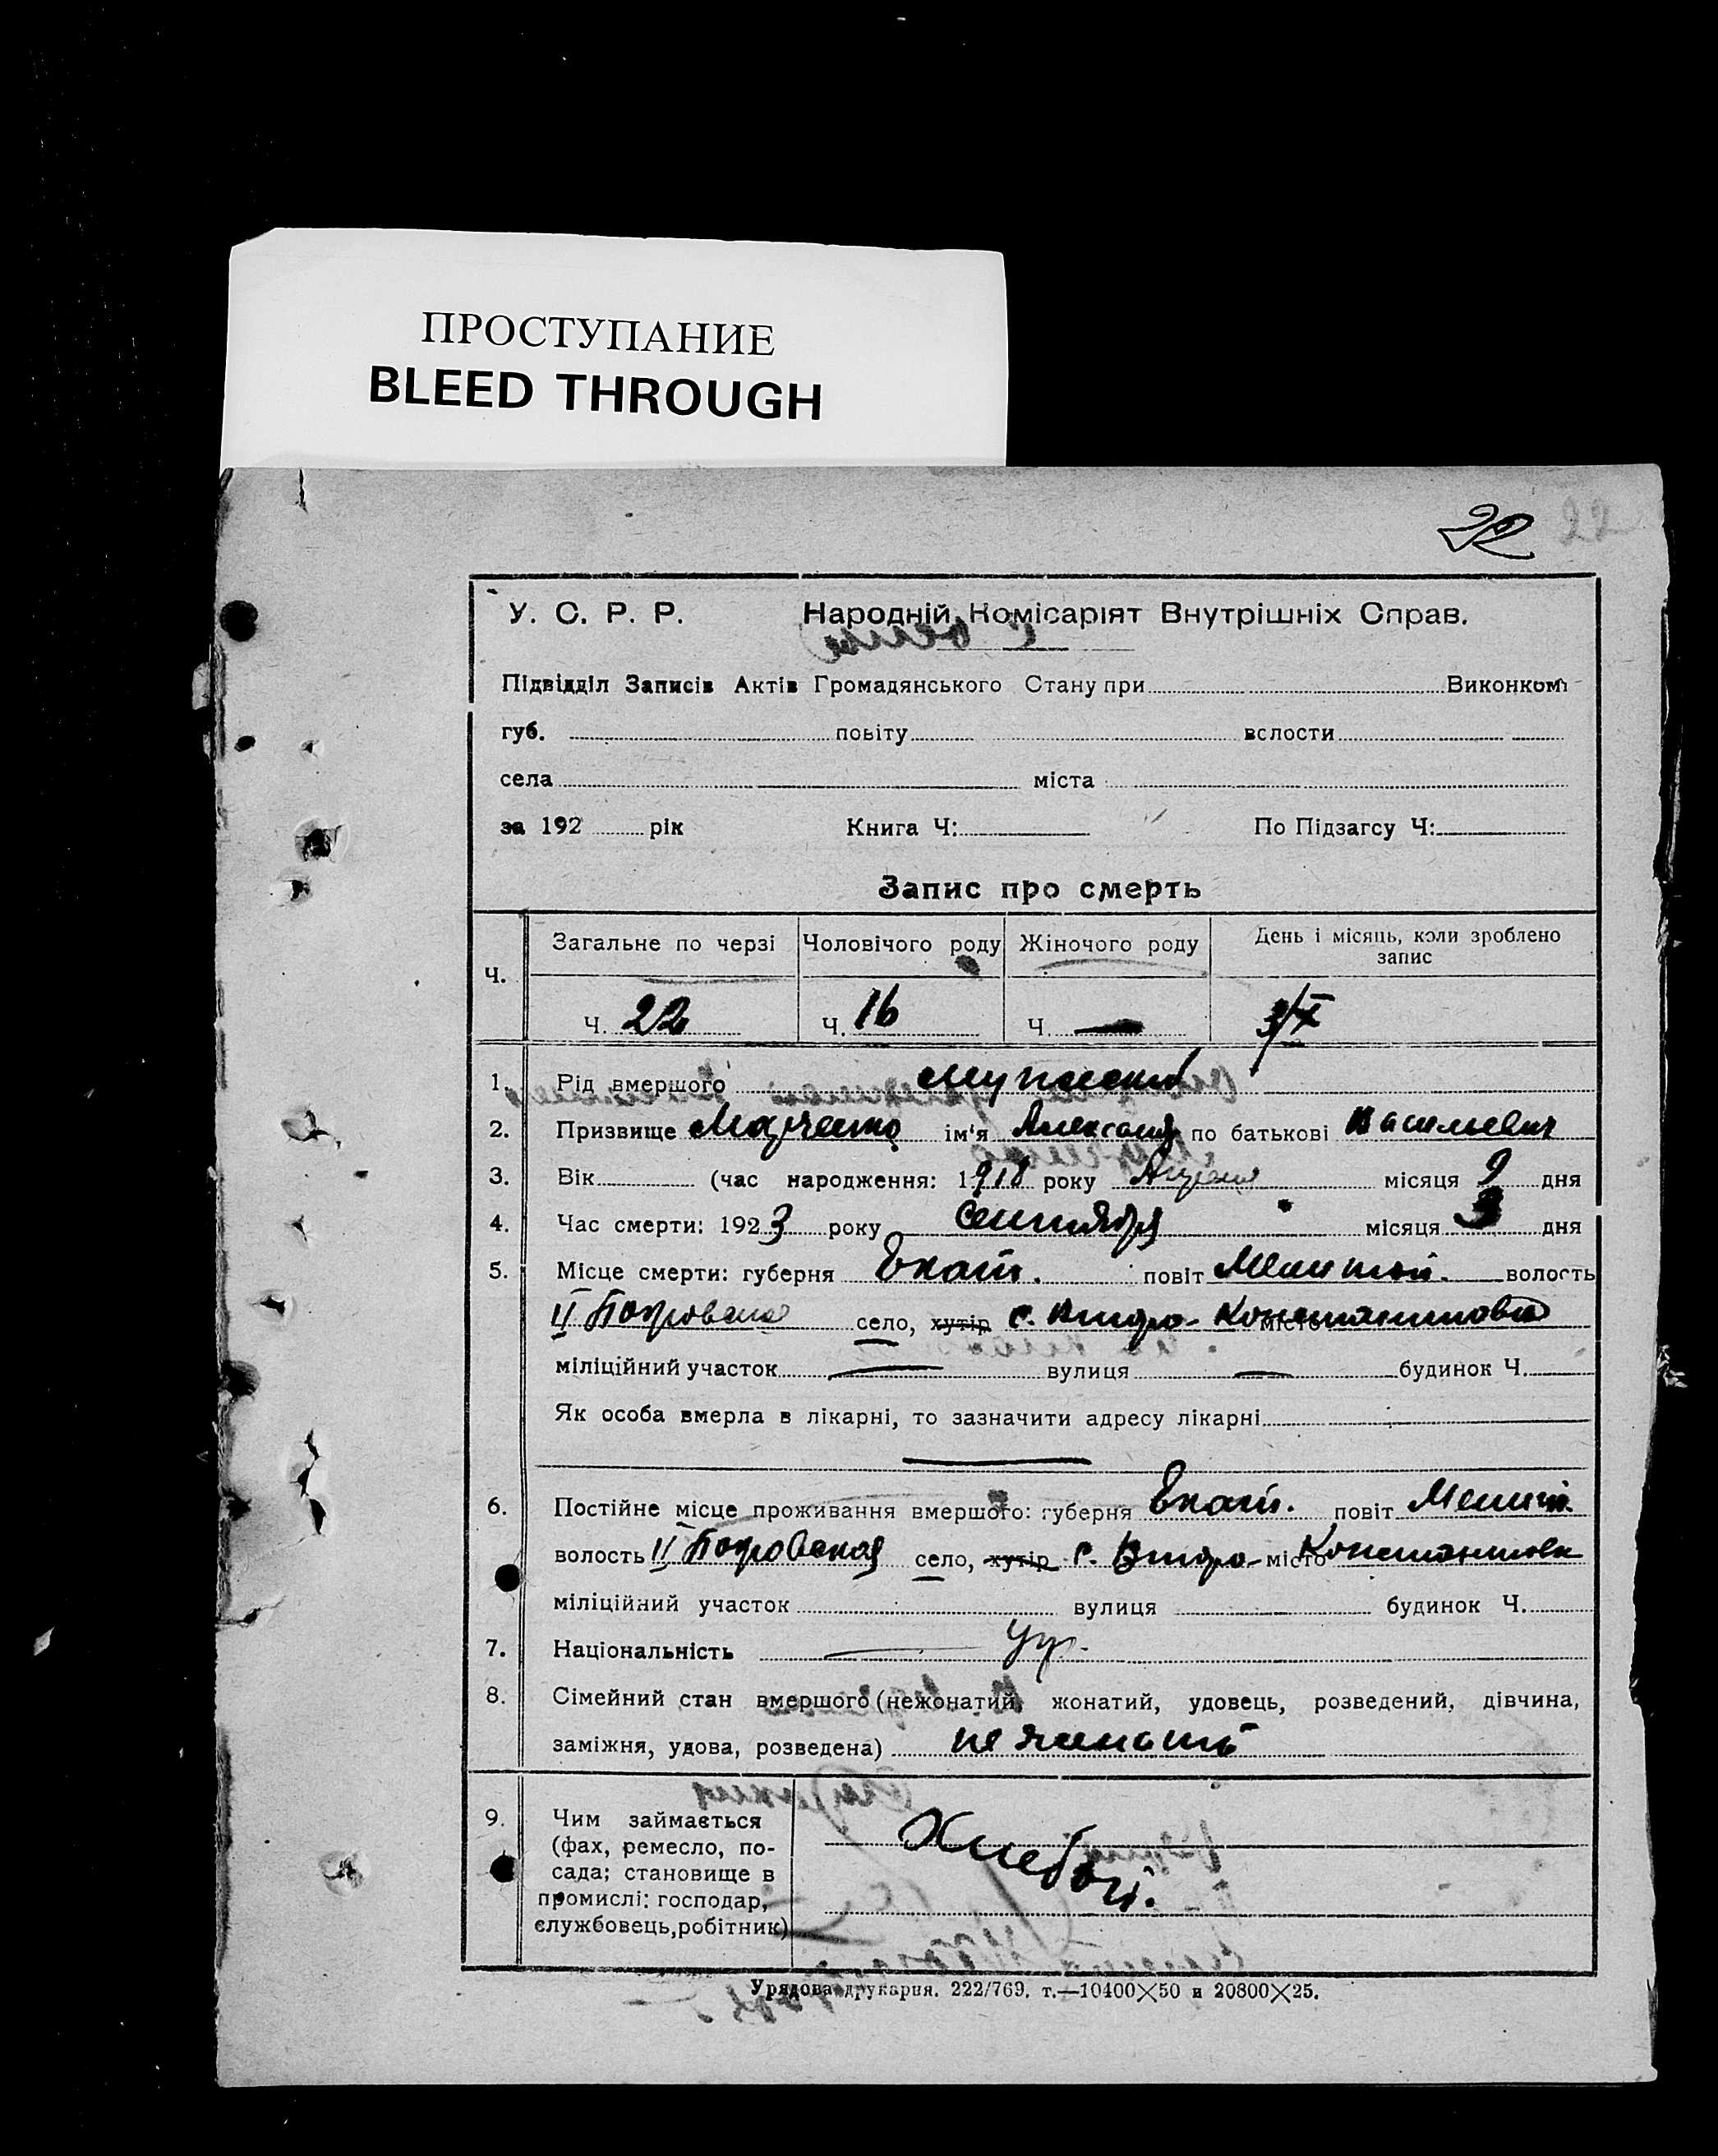 ПРОСТУПАНИЕ
BLEED THROUGH
22 22
У. С. Р. Р. Народній Комісаріят Внутрішніх Справ.
Підвідділ Записів Актів Громадянського Стану при Виконком
губ. повіту волости
села міста
за 192 рік Книга Ч: По Підзагсу Ч:
Запис про смерть
Ч. Загальне по черзі Чоловічого роду Жіночого роду День і місяць, коли зроблено запис
Ч. 22 Ч. 16 Ч. — 3/X
1. Рід вмершого мужской
2. Призвище ім'я Александр по батькові Васильевич
3. Вік (час народження: 1918 року місяця 9 дня
4. Час смерти: 1923 року Сентября місяця 3 дня
5. Місце смерти: губерня Екат. повіт Мелитой. волость
II Покровская село, хутір с. Второ- місто Константиновка
міліційний участок — вулиця — будинок Ч.
Як особа вмерла в лікарні, то зазначити адресу лікарні
6. Постійне місце проживання вмершого: губерня Екат. повіт Мелит.
волость II Покровская село, хутір с. Второ- місто Константиновка
міліційний участок вулиця будинок Ч.
7. Національність — Укр.
8. Сімейний стан вмершого (нежонатий, жонатий, удовець, розведений, дівчина,
заміжня, удова, розведена) не женатый
9. Чим займається
(фах, ремесло, по-
сада; становище в
промислі: господар,
службовець, робітник)
Хлебоп.
Урядова друкарня. 222/769. т.—10400×50 и 20800×25.